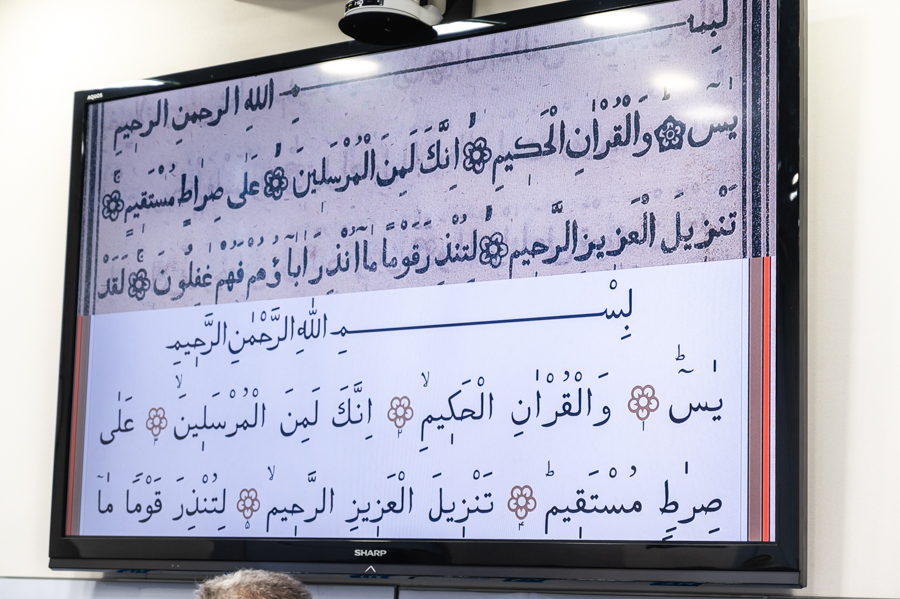 AQUOS
بِسْـــــــمِ اللهِ الرحمنِ الرحيمِ
يٰسٓ ۚ وَالْقُرْاٰنِ الْحَكٖيمِ ۙ اِنَّكَ لَمِنَ الْمُرْسَلٖينَ ۙ عَلٰى صِرَاطٍ مُسْتَقٖيمٍ ۚ
تَنْزٖيلَ الْعَزٖيزِ الرَّحٖيمِ ۙ لِتُنْذِرَ قَوْمًا مَٓا اُنْذِرَ اٰبَٓاؤُهُمْ فَهُمْ غٰفِلُونَ لَقَدْ
بِسْـــــــمِ اللّٰهِ الرَّحْمٰنِ الرَّحٖيمِ
يٰسٓ ۚ ١ وَالْقُرْاٰنِ الْحَكٖيمِ ۙ ٢ اِنَّكَ لَمِنَ الْمُرْسَلٖينَ ۙ ٣ عَلٰى
صِرَاطٍ مُسْتَقٖيمٍ ۜ ٤ تَنْزٖيلَ الْعَزٖيزِ الرَّحٖيمِ ۙ ٥ لِتُنْذِرَ قَوْمًا مَٓا
SHARP